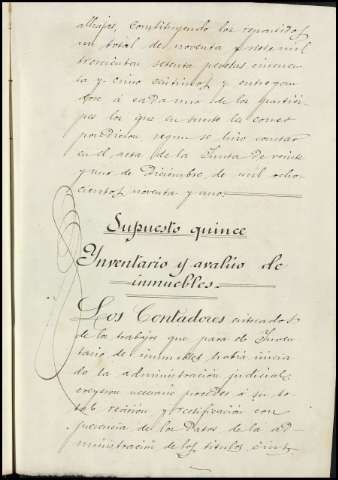 alhajas, constituyendo los repartidos
un total de noventa y siete mil
trescientas setenta pesetas cincuen
ta y cinco céntimos y entregan
dose á cada uno de los partíci
pes los que en suerte les corres
pondieron, segun se hizo constar
en el acta de la Junta de veinte
y uno de Diciembre, de mil ocho
cientos noventa y uno.
Supuesto quince
Ynventario y avalúo de
inmuebles.
Los Contadores enterados
de los trabajos que para el Inven
tario de inmuebles habia inicia
do la administración judicial,
creyeron necesario proceder á su to
tal revisión y rectificación con
presencia de los Datos de la ad-
ministración de los titulos